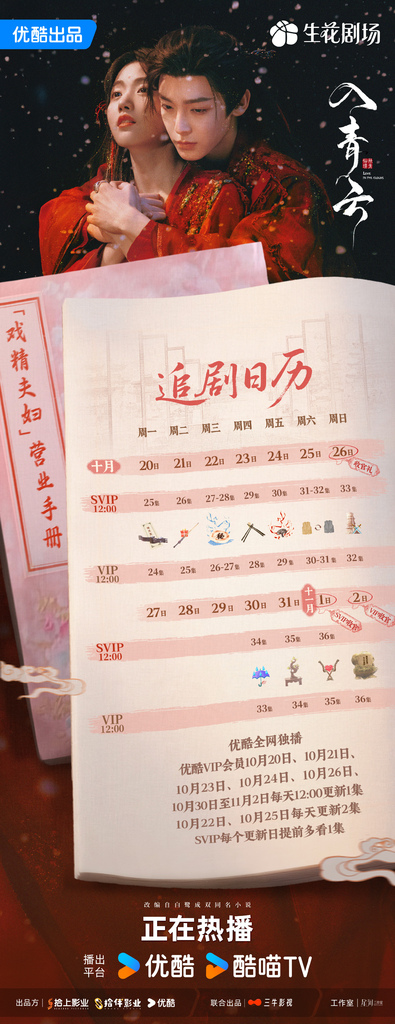 优酷出品
生花剧场
入青云
LOVE IN THE CLOUDS
「戏精夫妇」营业手册
追剧日历
周一 周二 周三 周四 周五 周六 周日
十月 20日 21日 22日 23日 24日 25日 26日
收官礼
SVIP 12:00 25集 26集 27-28集 29集 30集 31-32集 33集
VIP 12:00 24集 25集 26-27集 28集 29集 30-31集 32集
27日 28日 29日 30日 31日 十一月 1日 2日
SVIP收官 VIP收官
SVIP 12:00 34集 35集 36集
VIP 12:00 33集 34集 35集 36集
优酷全网独播
优酷VIP会员10月20日、10月21日、
10月23日、10月24日、10月26日、
10月30日至11月2日每天12:00更新1集
10月22日、10月25日每天更新2集
SVIP每个更新日提前多看1集
改编自白鹭成双同名小说
正在热播
播出平台 优酷 酷喵TV
出品方 拾上影业 优酷 联合出品 三牛影视 工作室